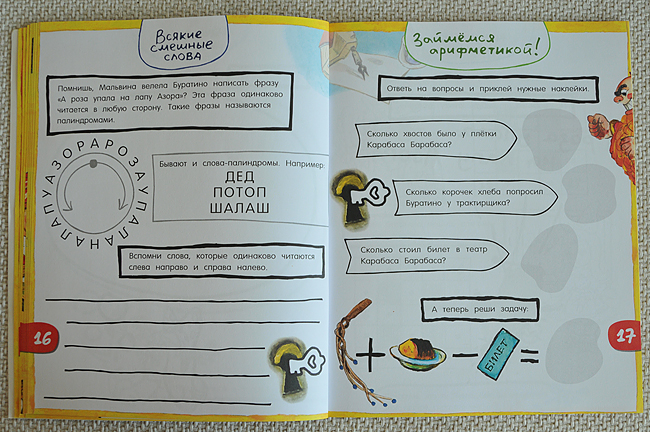 Всякие
смешные
слова
Помнишь, Мальвина велела Буратино написать фразу
«А роза упала на лапу Азора»? Эта фраза одинаково
читается в любую сторону. Такие фразы называются
палиндромами.
АЗОРАРОЗАУПАЛАНАЛАПУ
Бывают и слова-палиндромы. Например:
ДЕД
ПОТОП
ШАЛАШ
Вспомни слова, которые одинаково читаются
слева направо и справа налево.
16
Займёмся
арифметикой!
Ответь на вопросы и приклей нужные наклейки.
Сколько хвостов было у плётки
Карабаса Барабаса?
Сколько корочек хлеба попросил
Буратино у трактирщика?
Сколько стоил билет в театр
Карабаса Барабаса?
А теперь реши задачу:
+ − БИЛЕТ =
17